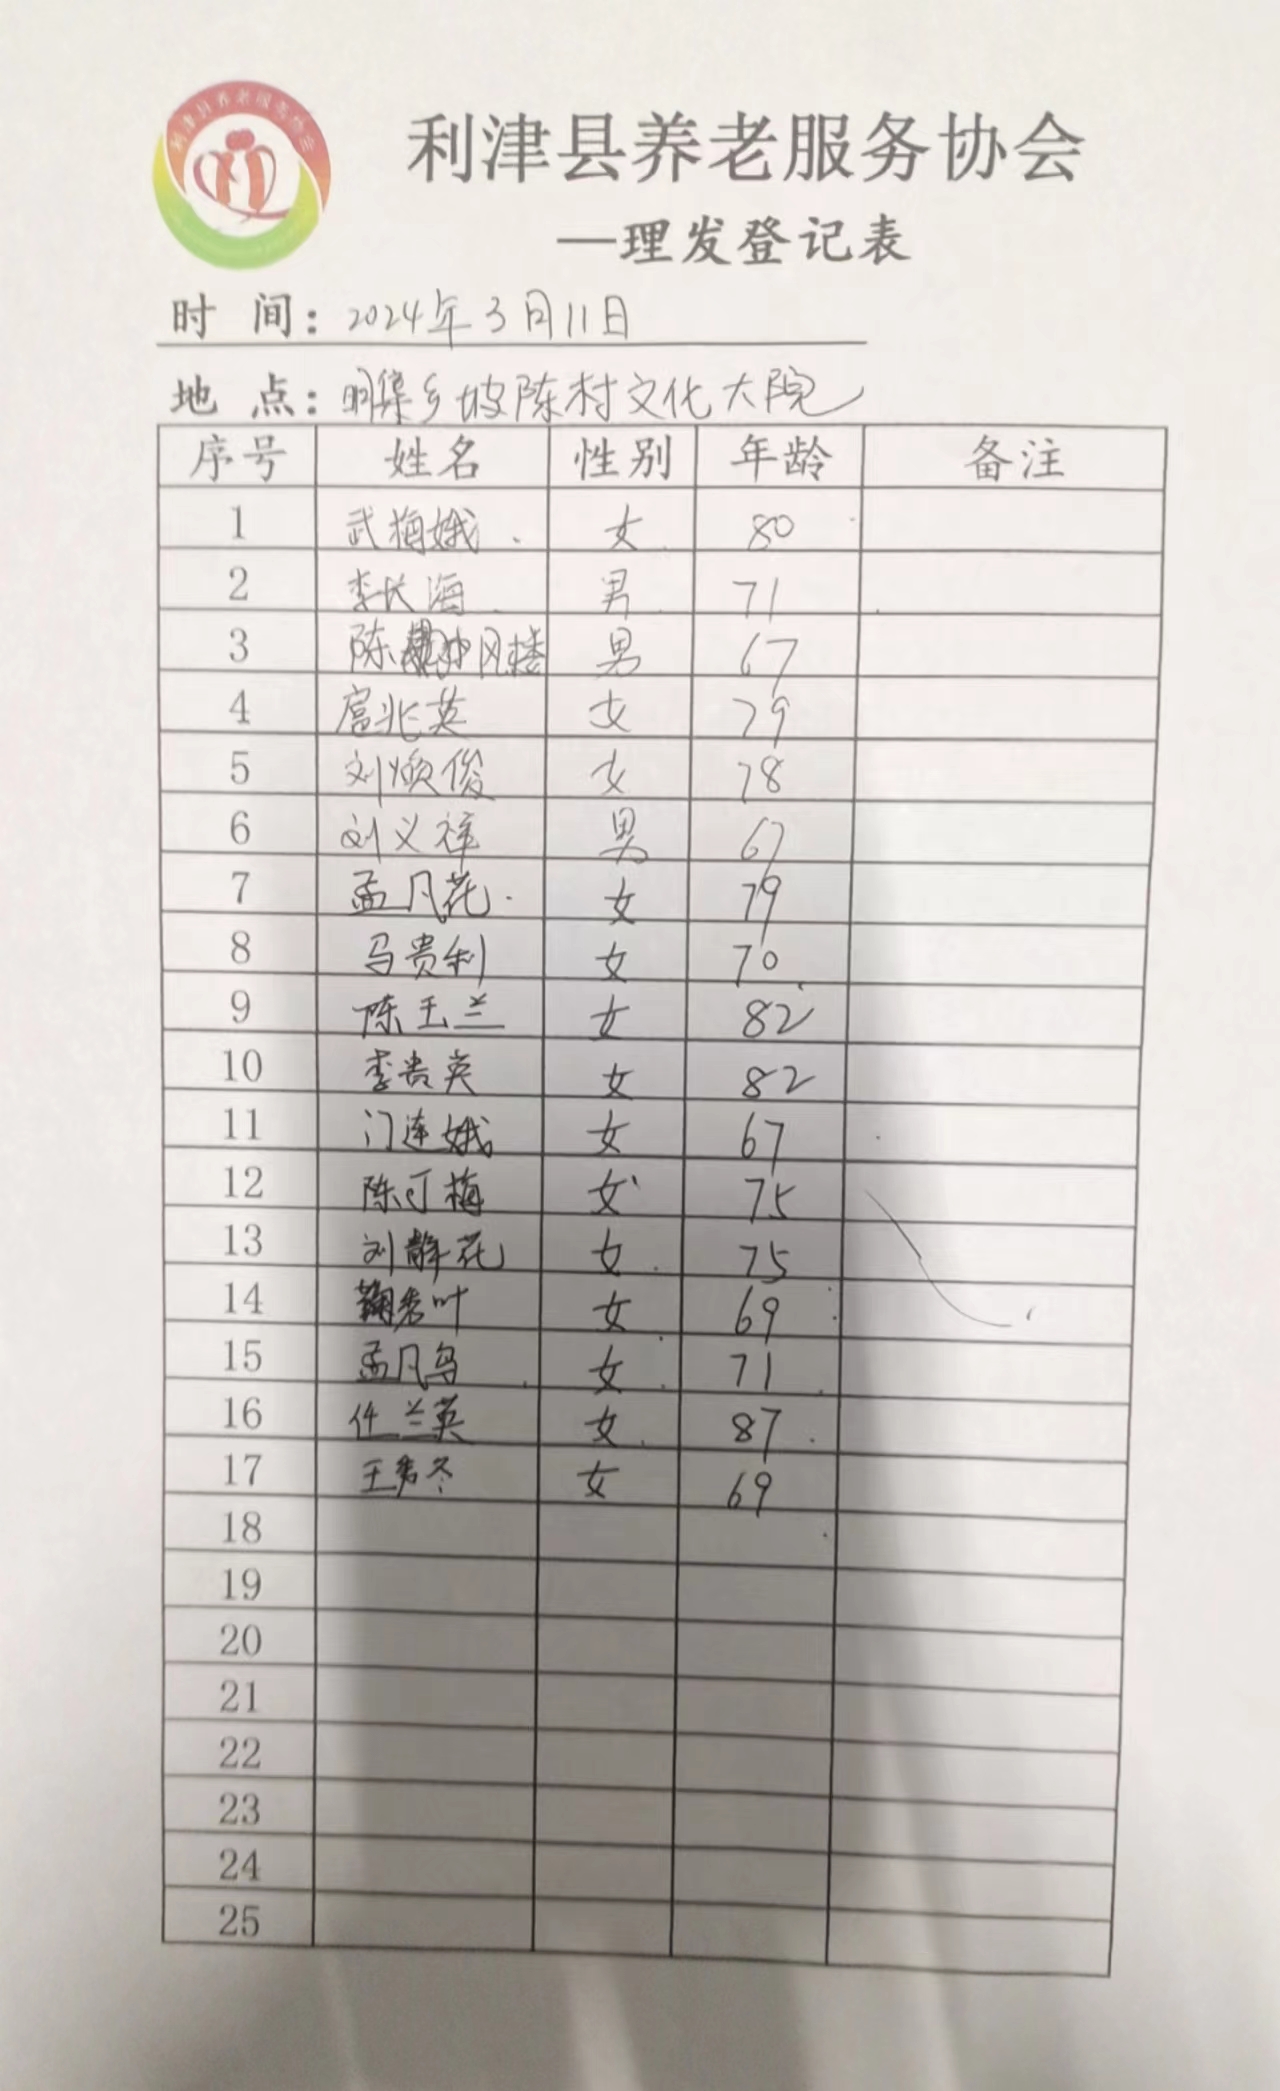 利津县养老服务协会
利津县养老服务协会
—理发登记表
时 间：2024年3月11日
地 点：明集乡坡陈村文化大院
序号 姓名 性别 年龄 备注
1 武梅娥 女 80
2 李长海 男 71
3 陈风楼 男 67
4 扈兆英 女 79
5 刘焕俊 女 78
6 刘义祥 男 67
7 孟凡花 女 79
8 马贵利 女 70
9 陈玉兰 女 82
10 李贵英 女 82
11 门连娥 女 67
12 陈可梅 女 75
13 刘静花 女 75
14 秀叶 女 69
15 孟凡鸟 女 71
16 任兰英 女 87
17 王秀冬 女 69
18
19
20
21
22
23
24
25